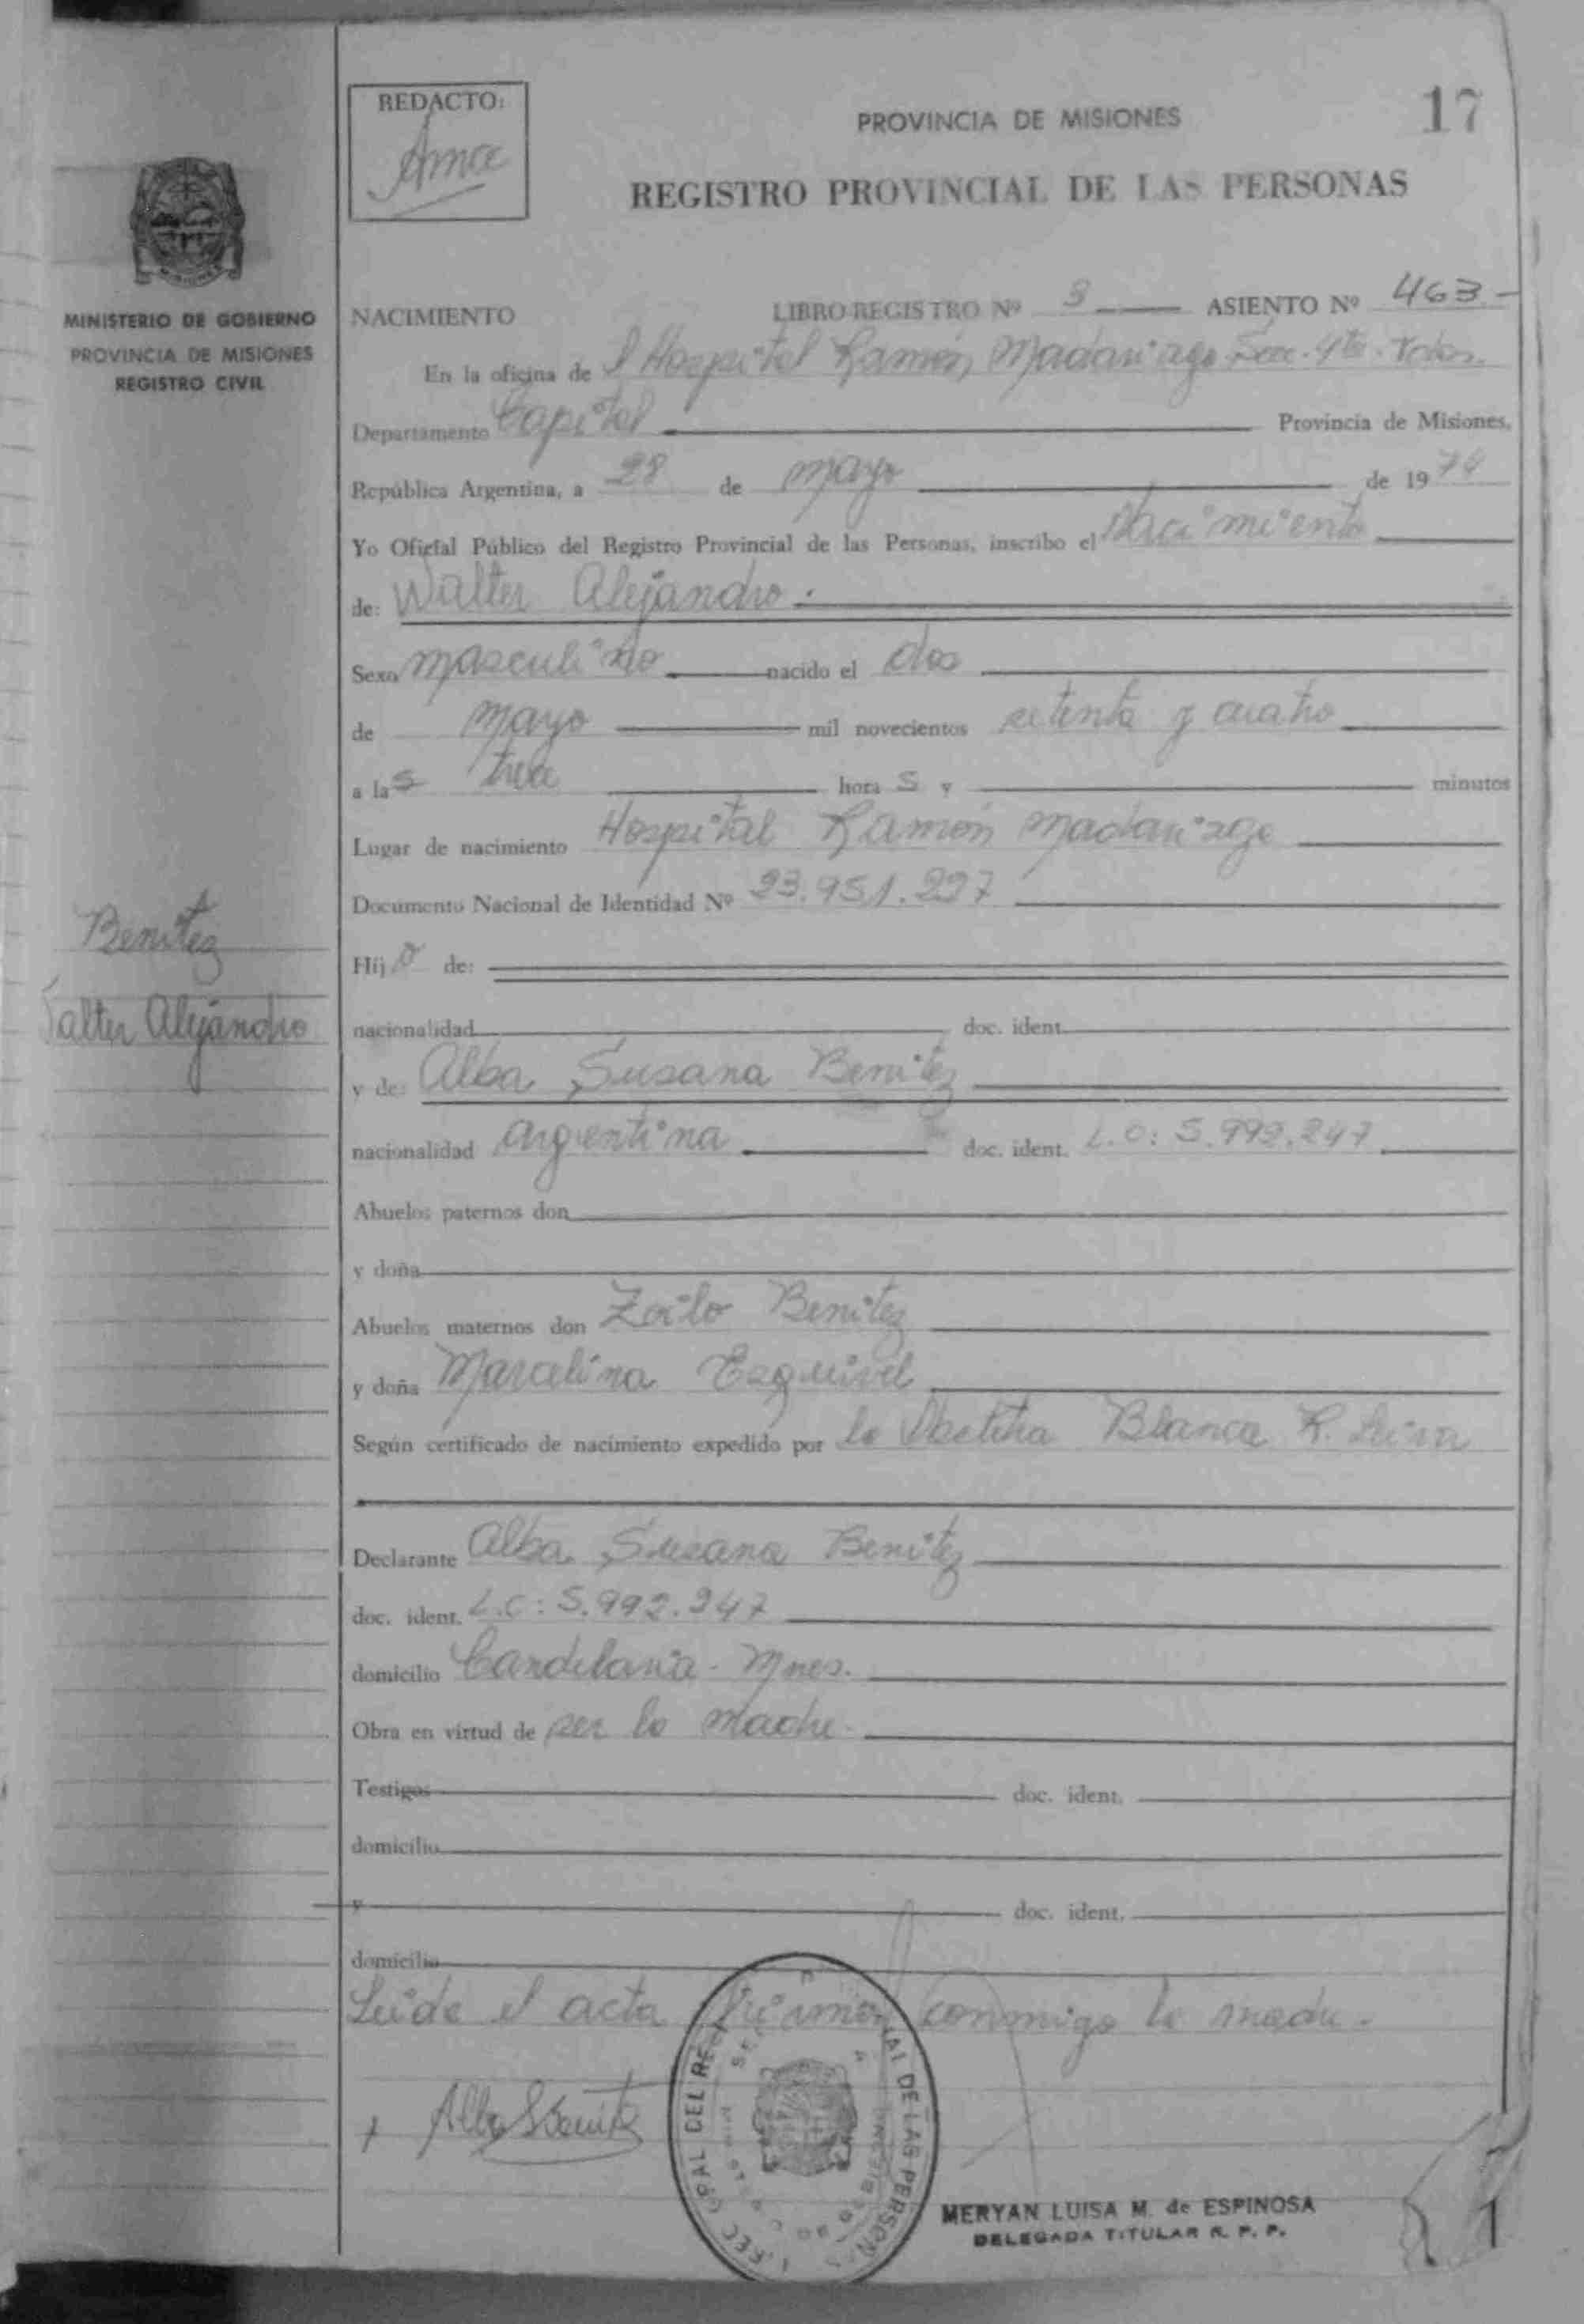 REDACTO:
PROVINCIA DE MISIONES
17
REGISTRO PROVINCIAL DE LAS PERSONAS
MINISTERIO DE GOBIERNO
PROVINCIA DE MISIONES
REGISTRO CIVIL
NACIMIENTO LIBRO REGISTRO Nº 3 ASIENTO Nº 463-
En la oficina de l Hospital Ramón Madariaga Sec. 4ta.
Departamento Capital Provincia de Misiones,
República Argentina, a 28 de mayo de 1974
Yo Oficial Público del Registro Provincial de las Personas, inscribo el Nacimiento
de: Walter Alejandro.
Sexo masculino nacido el dos
de mayo mil novecientos setenta y cuatro
a las trece horas y minutos
Lugar de nacimiento Hospital Ramón Madariaga
Documento Nacional de Identidad Nº 23.951.227
Benitez
Walter Alejandro
Hijo de:
nacionalidad doc. ident.
y de: Alba Susana Benitez
nacionalidad argentina doc. ident. L.C: 5.992.247
Abuelos paternos don
y doña
Abuelos maternos don Zoilo Benitez
y doña Marcelina Esquivel
Según certificado de nacimiento expedido por la Partera Blanca R. Leiva
Declarante Alba Susana Benitez
doc. ident. L.C: 5.992.247
domicilio Candelaria - Mnes.
Obra en virtud de ser la madre.
Testigos doc. ident.
domicilio
y doc. ident.
domicilio
Leida el acta firman conmigo la madre.-
Alba S Benitez
MERYAN LUISA M. de ESPINOSA
DELEGADA TITULAR R. P. P.
1